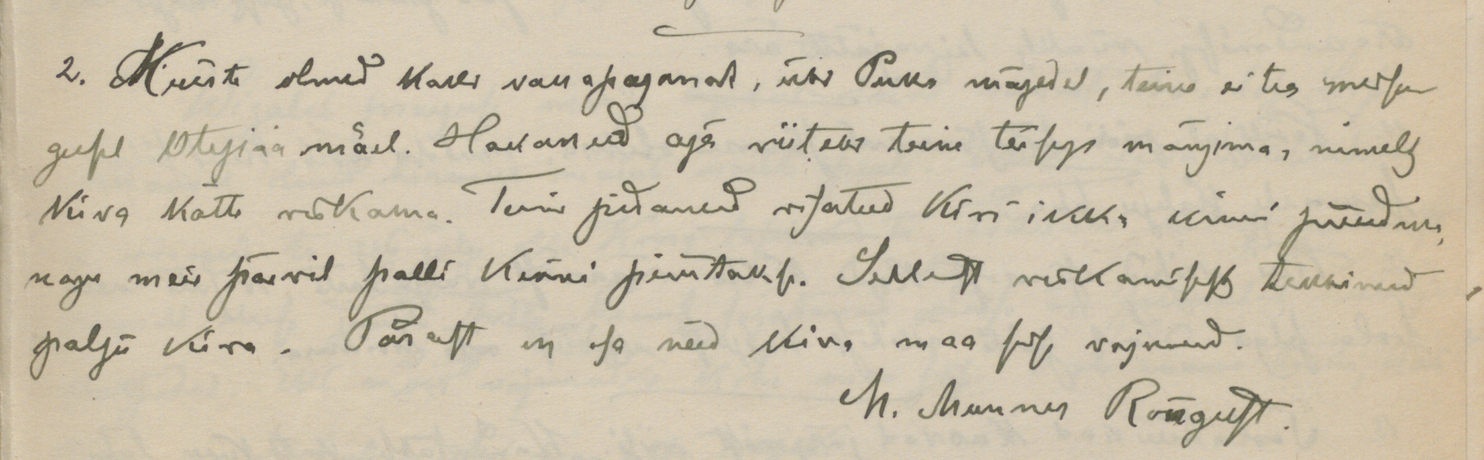 2. Muiste olnud kaks vanapaganat, üks Puka mägedel, teine ei tea missu
gusel Otepää mäel. Hakanud aja viiteks teine teisega mängima, nimelt
kiva kätte viskama. Teine pidanud visatud kivi ikka kinni püüdma,
nagu meie päevil palli kinni püütakse. Sellest viskamisest tekkinud
palju kiva. Pärast on osa neid kiva maa sisse vajunud.
M. Rõngust.